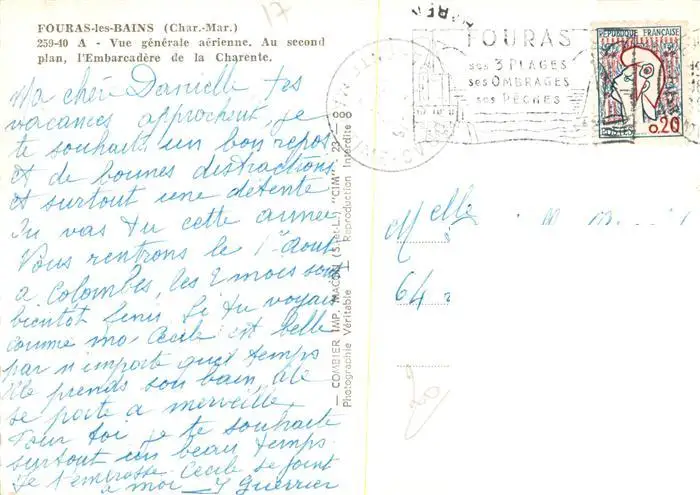 FOURAS-les-BAINS (Char.-Mar.)
259-40 A - Vue générale aérienne. Au second
plan, l'Embarcadère de la Charente.
Ma chér Danielle tes
vacances approchent, je
te souhaite un bon repos
et de bonnes distractions
et surtout une détente
Où vas tu cette année
Nous rentrons le 1er août
a Colombes, les 2 mois sont
bientôt finis. Si tu voyais
comme ma Cécile est belle
par n'importe quel temps
elle prends son bain, elle
se porte a merveille
Pour toi je te souhaite
surtout un beau temps.
Je t'embrasse Cécile se joint
a moi Y Guerrier
— COMBIER IMP. MACON (S.-et-L.) "CIM" 23-1 ooo
Photographie Véritable - Reproduction Interdite
FOURAS
ses 3 PLAGES
ses OMBRAGES
ses PÊCHES
REPUBLIQUE FRANÇAISE
POSTES 0,20
Melle
64
17
20